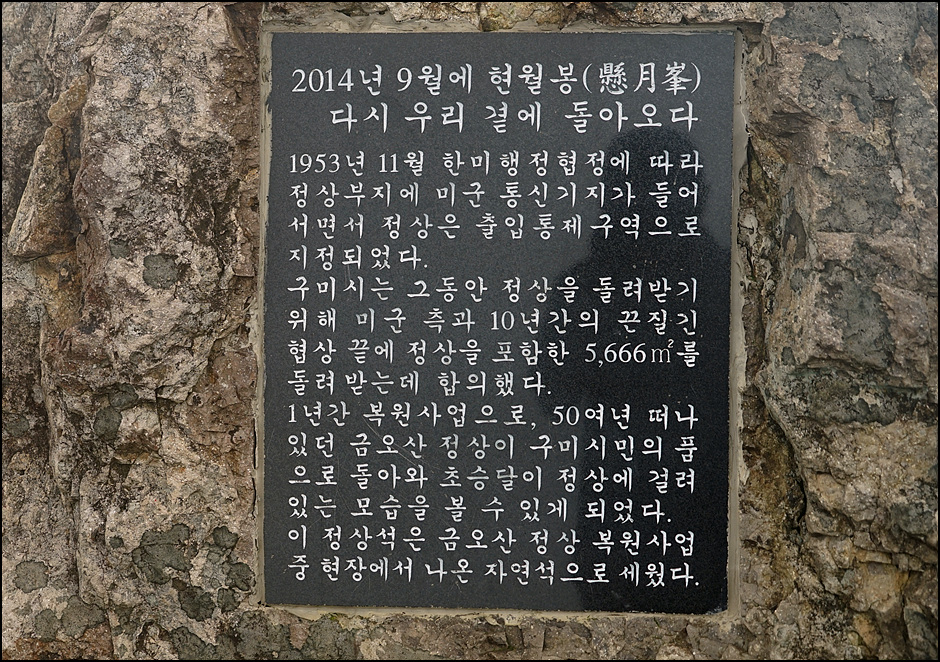 2014년 9월에 현월봉(懸月峯)
다시 우리 곁에 돌아오다
1953년 11월 한미행정협정에 따라
정상부지에 미군 통신기지가 들어
서면서 정상은 출입통제구역으로
지정되었다.
구미시는 그동안 정상을 돌려받기
위해 미군 측과 10년간의 끈질긴
협상 끝에 정상을 포함한 5,666㎡를
돌려받는데 합의했다.
1년간 복원사업으로, 50여년 떠나
있던 금오산 정상이 구미시민의 품
으로 돌아와 초승달이 정상에 걸려
있는 모습을 볼 수 있게 되었다.
이 정상석은 금오산 정상 복원사업
중 현장에서 나온 자연석으로 세웠다.